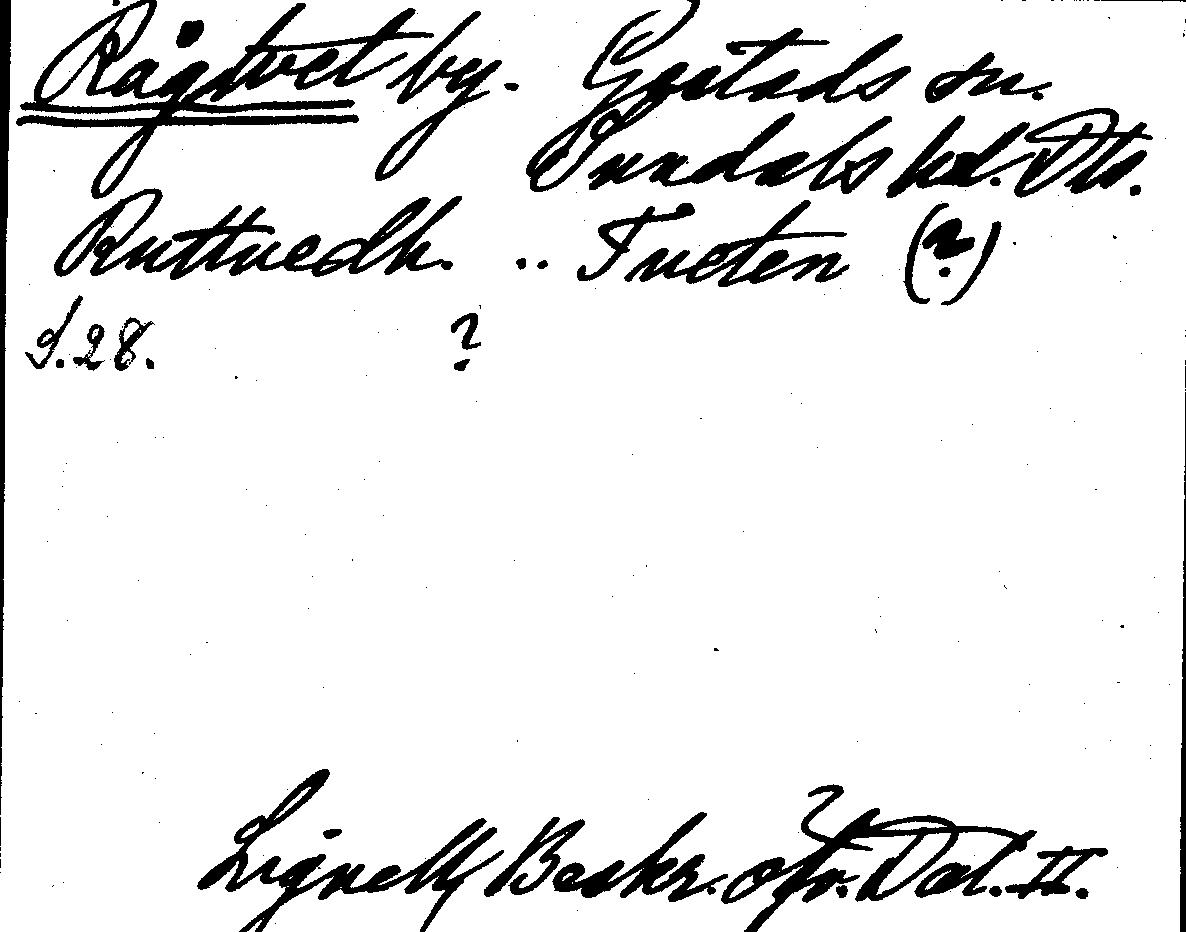 Rågtvet by. Gestads sn.
Sundals hd. Dls.
Ruttvedh. .. Tveten (?)
S. 28. ?
Lignell, Beskr. öfv. Dal. II.